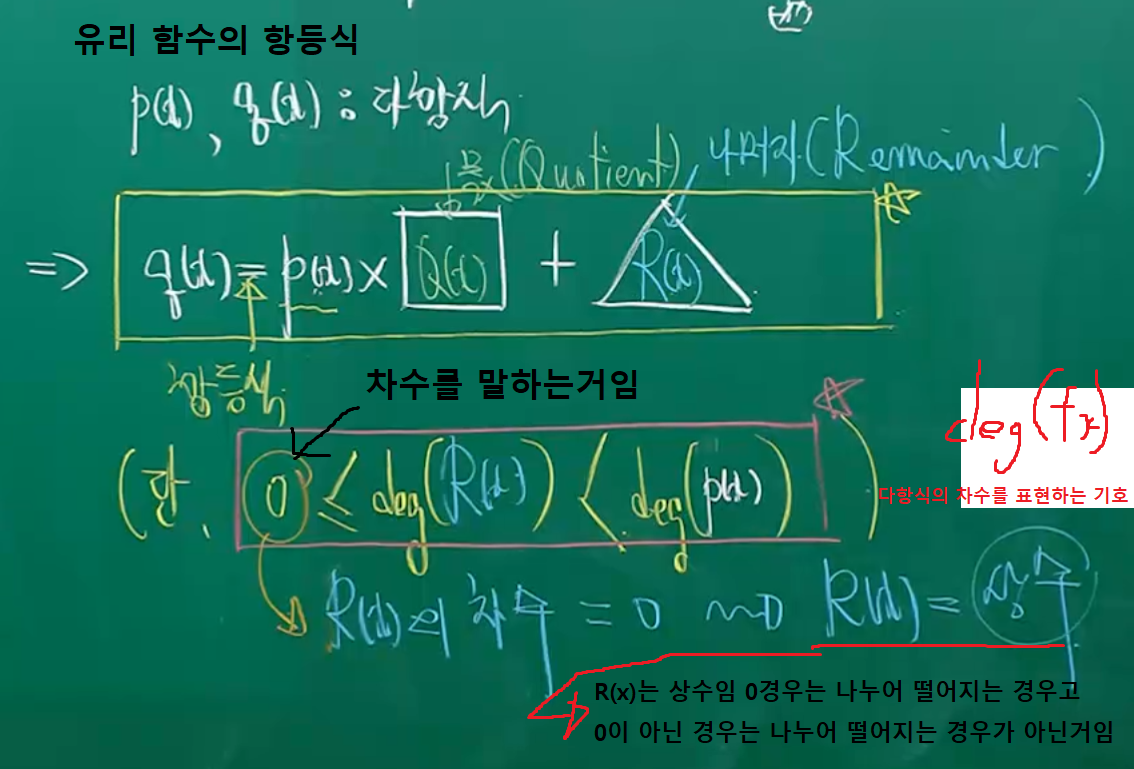 유리 함수의 항등식
p(x), q(x) : 다항식
몫(Quotient), 나머지(Remainder)
=> q(x) = p(x) × Q(x) + R(x)
항등식
차수를 말하는거임
(단, 0 ≤ deg(R(x)) < deg(p(x)))
deg(fx)
다항식의 차수를 표현하는 기호
R(x)의 차수 = 0 ~> R(x) = 상수
R(x)는 상수임 0경우는 나누어 떨어지는 경우고
0이 아닌 경우는 나누어 떨어지는 경우가 아닌거임